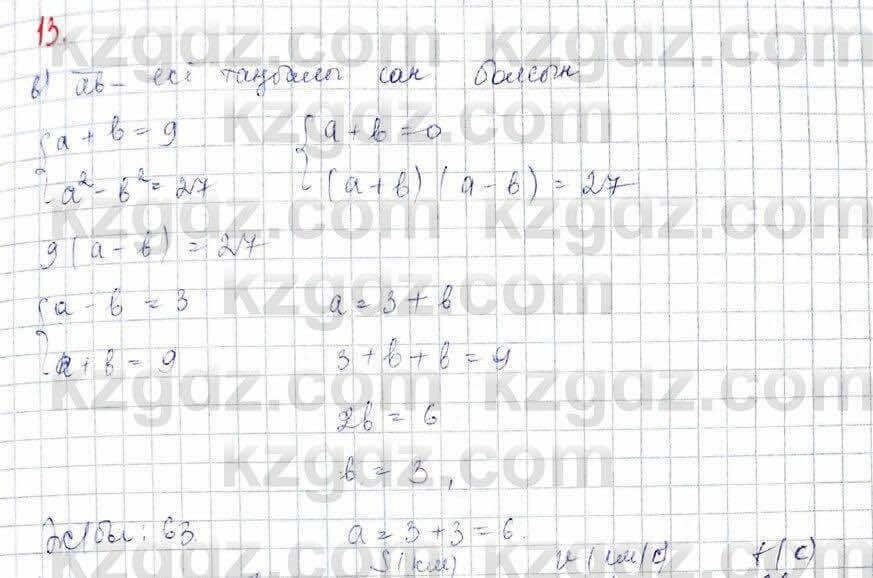 13.
в) ab – екі таңбалы сан болсын
a + b = 9 a + b = 0
a² - b² = 27 (a + b) (a - b) = 27
9 (a - b) = 27
a - b = 3 a = 3 + b
a + b = 9 3 + b + b = 9
2b = 6
b = 3,
Ж/бы: 63. a = 3 + 3 = 6.
S (км) t (c)
kzgdz.com kzgdz.com
kzgdz.com kzgdz.com
kzgdz.com
kzgdz.com kzgdz.com
kzgdz.com